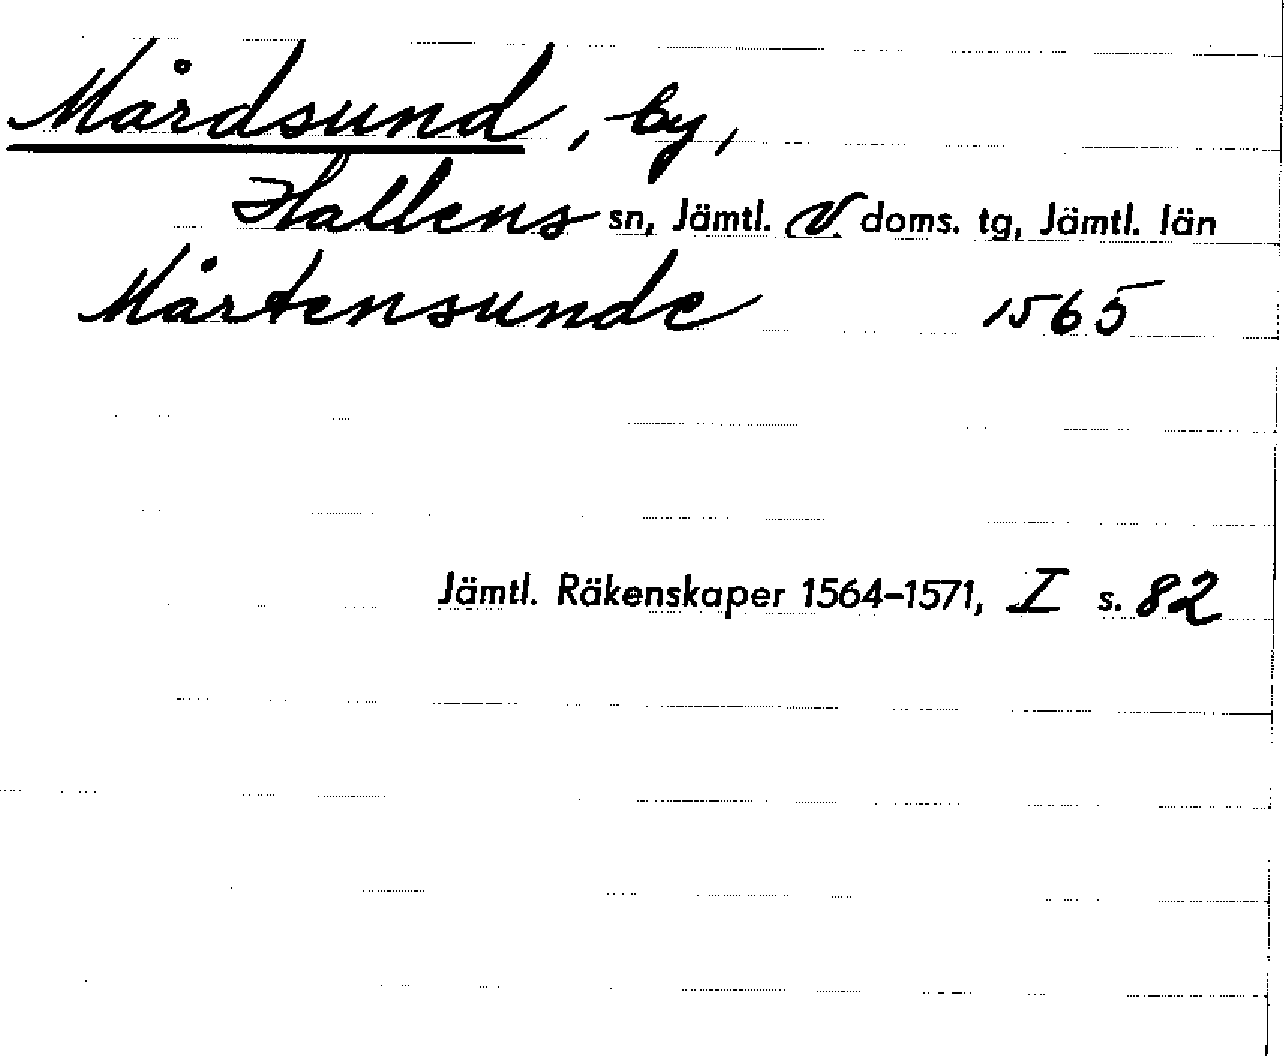 Mårdsund, by,
Hallens sn, Jämtl. V. doms. tg, Jämtl. län
Mårtensunde 1565
Jämtl. Räkenskaper 1564–1571, I s. 82